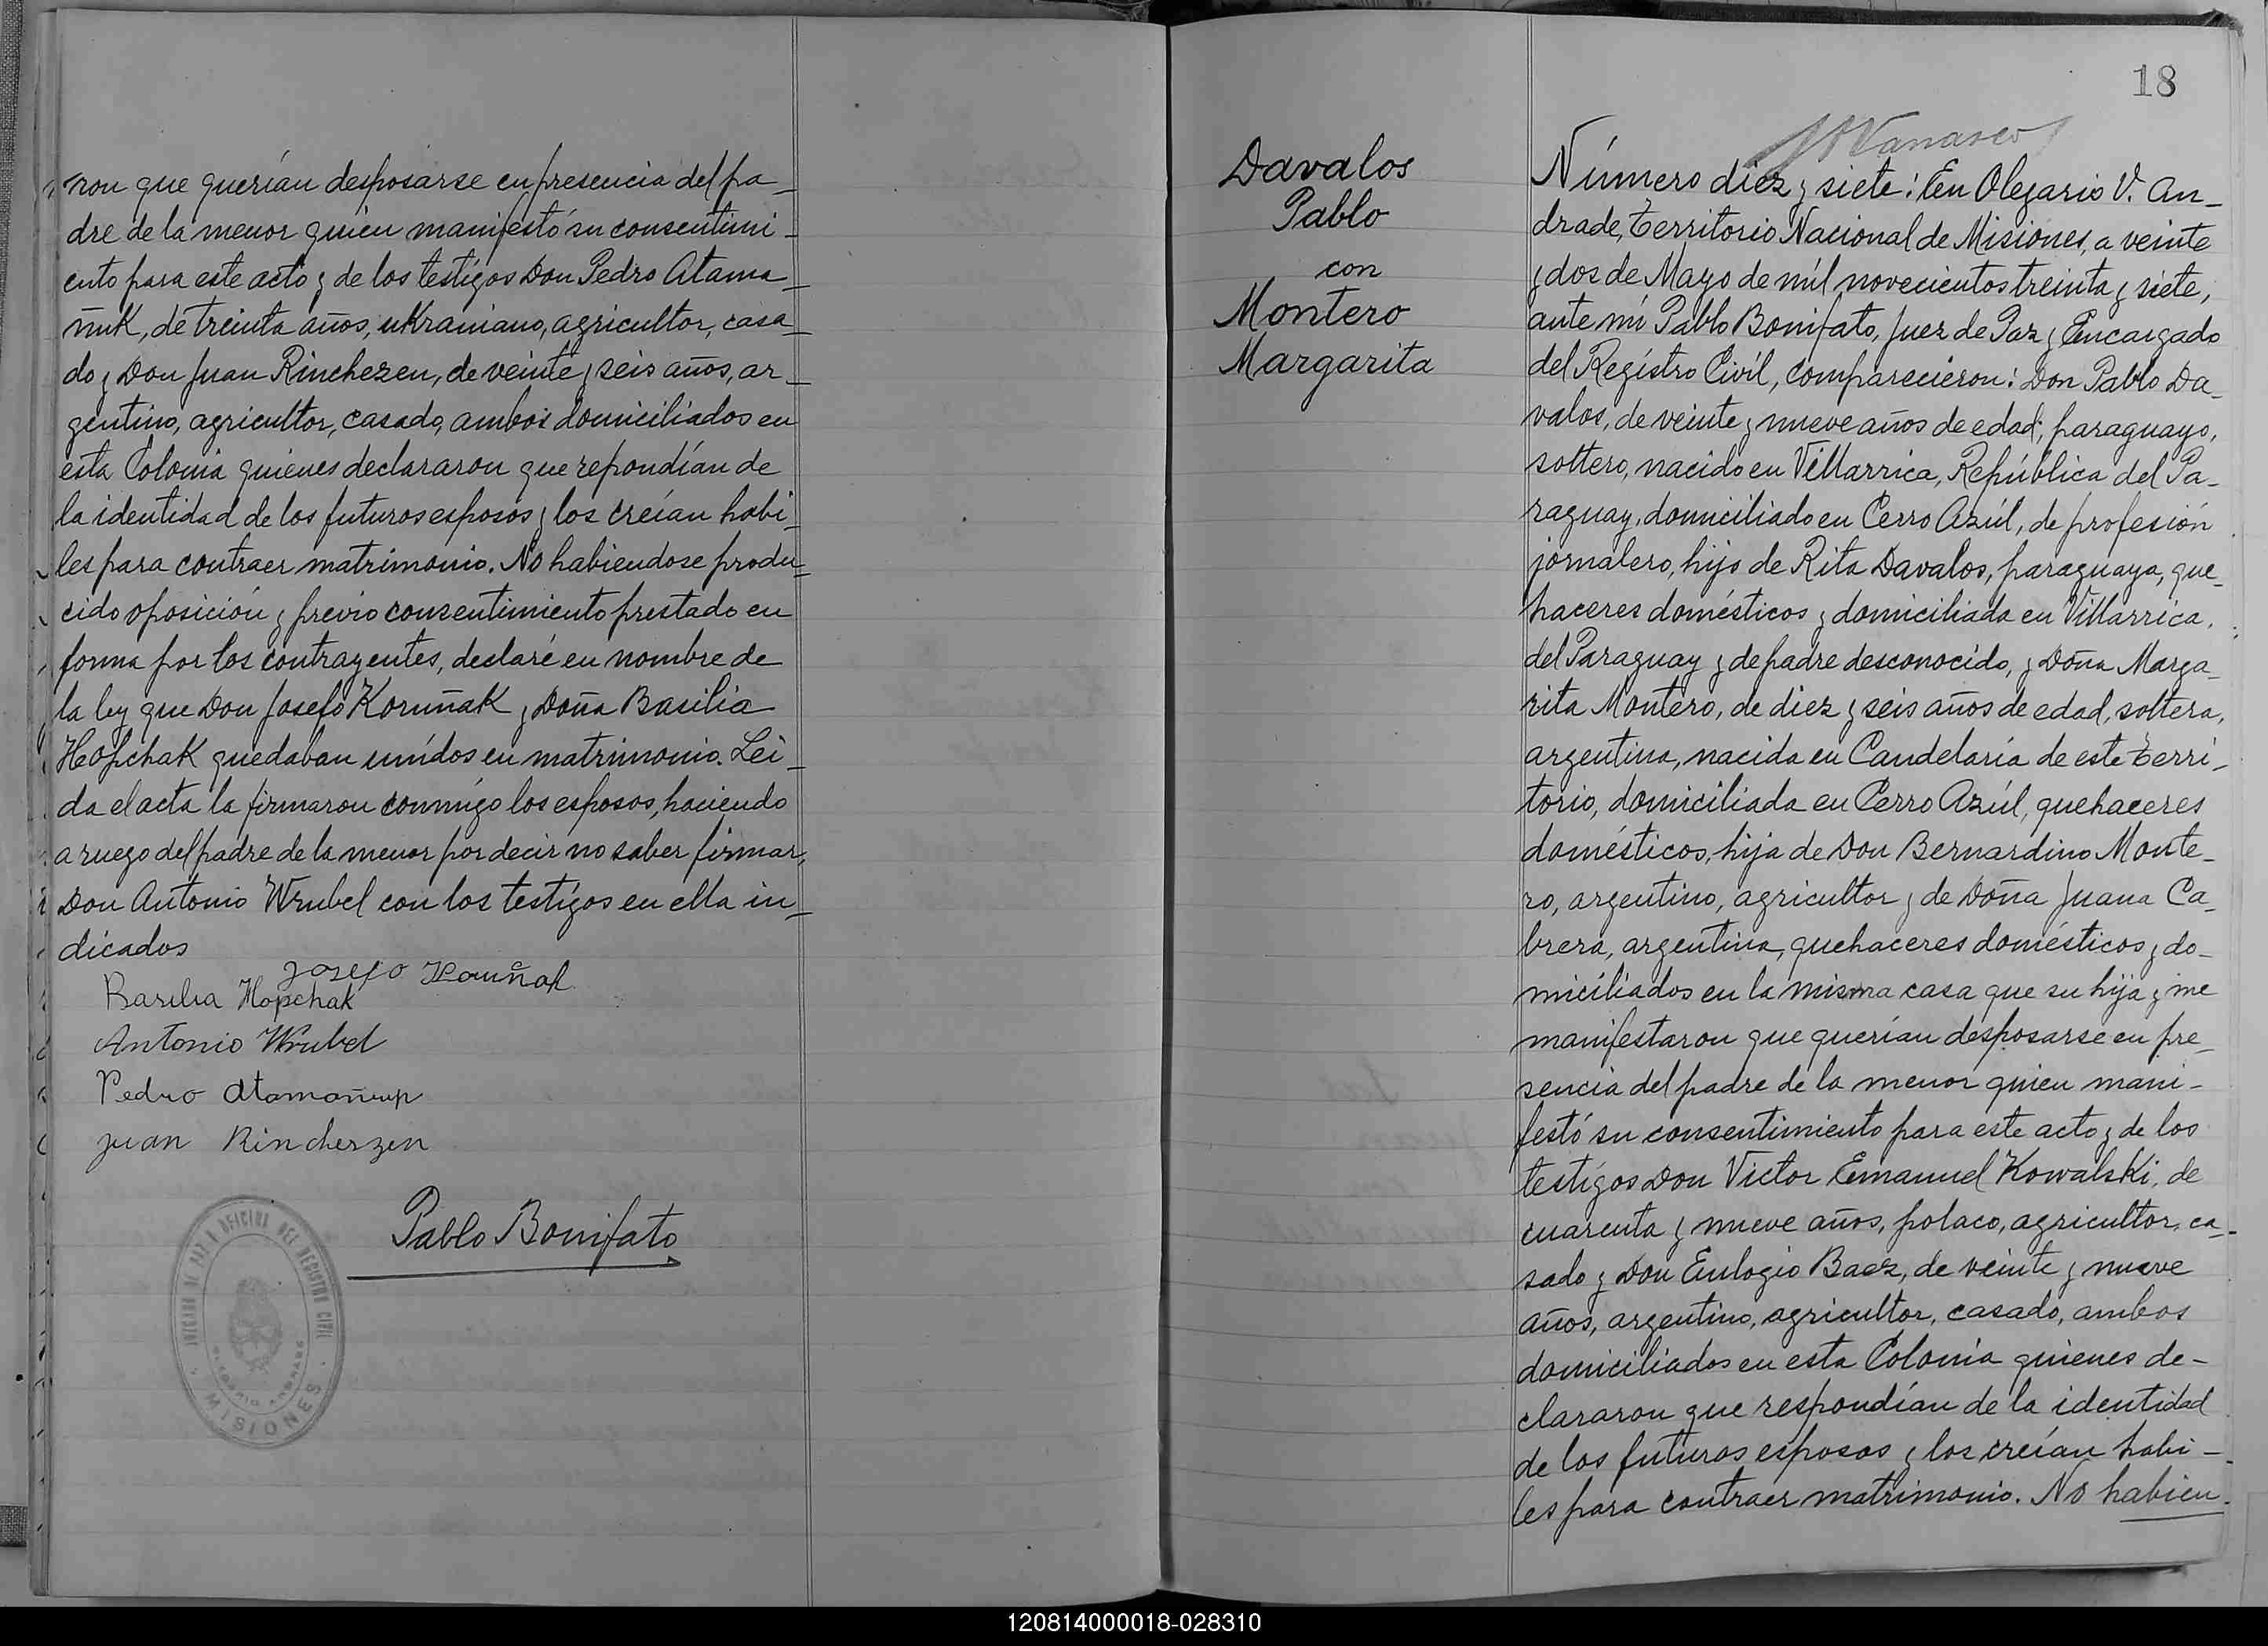 ron que querían desposarse en presencia del pa-
dre de la menor quien manifestó su consentimi-
ento para este acto y de los testigos Don Pedro Atama-
ñuk, de treinta años, ukraniano, agricultor, casa-
do y Don Juan Rinchezen, de veinte y seis años, ar-
gentino, agricultor, casado, ambos domiciliados en
esta Colonia quienes declararon que repondían de
la identidad de los futuros esposos y los creían habi-
les para contraer matrimonio. No habiendose produ-
cido oposición y previo consentimiento prestado en
forma por los contrayentes, declaré en nombre de
la ley que Don Josefo Koruñak y Doña Basilia
Hopchak quedaban unidos en matrimonio. Lei-
da el acta la firmaron conmigo los esposos, haciendo
a ruego del padre de la menor por decir no saber firmar,
Don Antonio Wrubel con los testigos en ella in-
dicados
Josefo Koruñak
Basilia Hopchak
Antonio Wrubel
Pedro Atamañuk
Juan Rincherzen
Pablo Bonifato
JUZGADO DE PAZ Y OFICINA DEL REGISTRO CIVIL
OLEGARIO ANDRADE
MISIONES
18
Davalos
Pablo
con
Montero
Margarita
Número diez y siete: En Olegario V. An-
drade, territorio Nacional de Misiones, a veinte
y dos de Mayo de mil novecientos treinta y siete,
ante mí Pablo Bonifato, Juez de Paz y Encargado
del Registro Civil, comparecieron: Don Pablo Da-
valos, de veinte y nueve años de edad, paraguayo,
soltero, nacido en Villarrica, República del Pa-
raguay, domiciliado en Cerro Azúl, de profesión
jornalero, hijo de Rita Davalos, paraguaya, que-
haceres domésticos y domiciliada en Villarrica,
del Paraguay y de padre desconocido, y Doña Marga-
rita Montero, de diez y seis años de edad, soltera,
argentina, nacida en Candelaria de este terri-
torio, domiciliada en Cerro Azúl, quehaceres
domésticos, hija de Don Bernardino Monte-
ro, argentino, agricultor y de Doña Juana Ca-
brera, argentina, quehaceres domésticos y do-
miciliados en la misma casa que su hija y me
manifestaron que querían desposarse en pre-
sencia del padre de la menor quien mani-
festó su consentimiento para este acto y de los
testigos Don Victor Emanuel Kowalski, de
cuarenta y nueve años, polaco, agricultor, ca-
sado y Don Eulogio Baez, de veinte y nueve
años, argentino, agricultor, casado, ambos
domiciliados en esta Colonia quienes de-
clararon que respondían de la identidad
de los futuros esposos y los creían habi-
les para contraer matrimonio. No habien
120814000018-028310